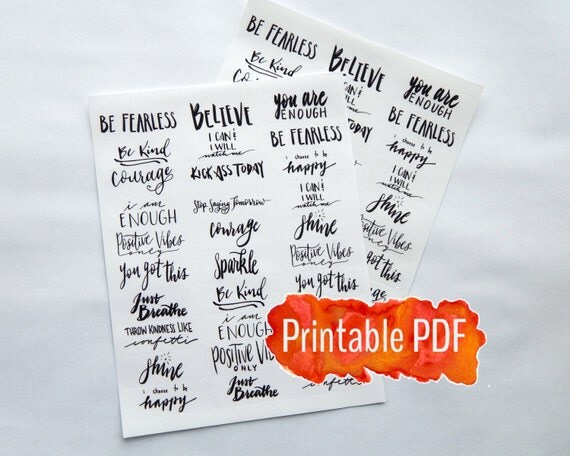 BE FEARLESS
Be Kind
courage
i am
ENOUGH
Positive Vibes
only
you got this
Just
Breathe
THROW KINDNESS LIKE
confetti
shine
i choose to be
happy
BELIEVE
I CAN &
I WILL
watch me
KICK ASS TODAY
Stop Saying Tomorrow
courage
Sparkle
Be Kind
i am
ENOUGH
POSITIVE VIB
ONLY
Just
Breathe
you are
ENOUGH
BE FEARLESS
i choose to be
happy
I CAN &
I WILL
watch me
shine
Positive Vibes
only
you got this
confetti
BE FEARLESS
Be Kind
BELIEVE
I CAN &
I WILL
TODAY
you are
ENOUGH
BE FEARLESS
i choose to be
happy
I CAN &
I WILL
watch me
shine
Positive Vibes
only
you got this
Printable PDF